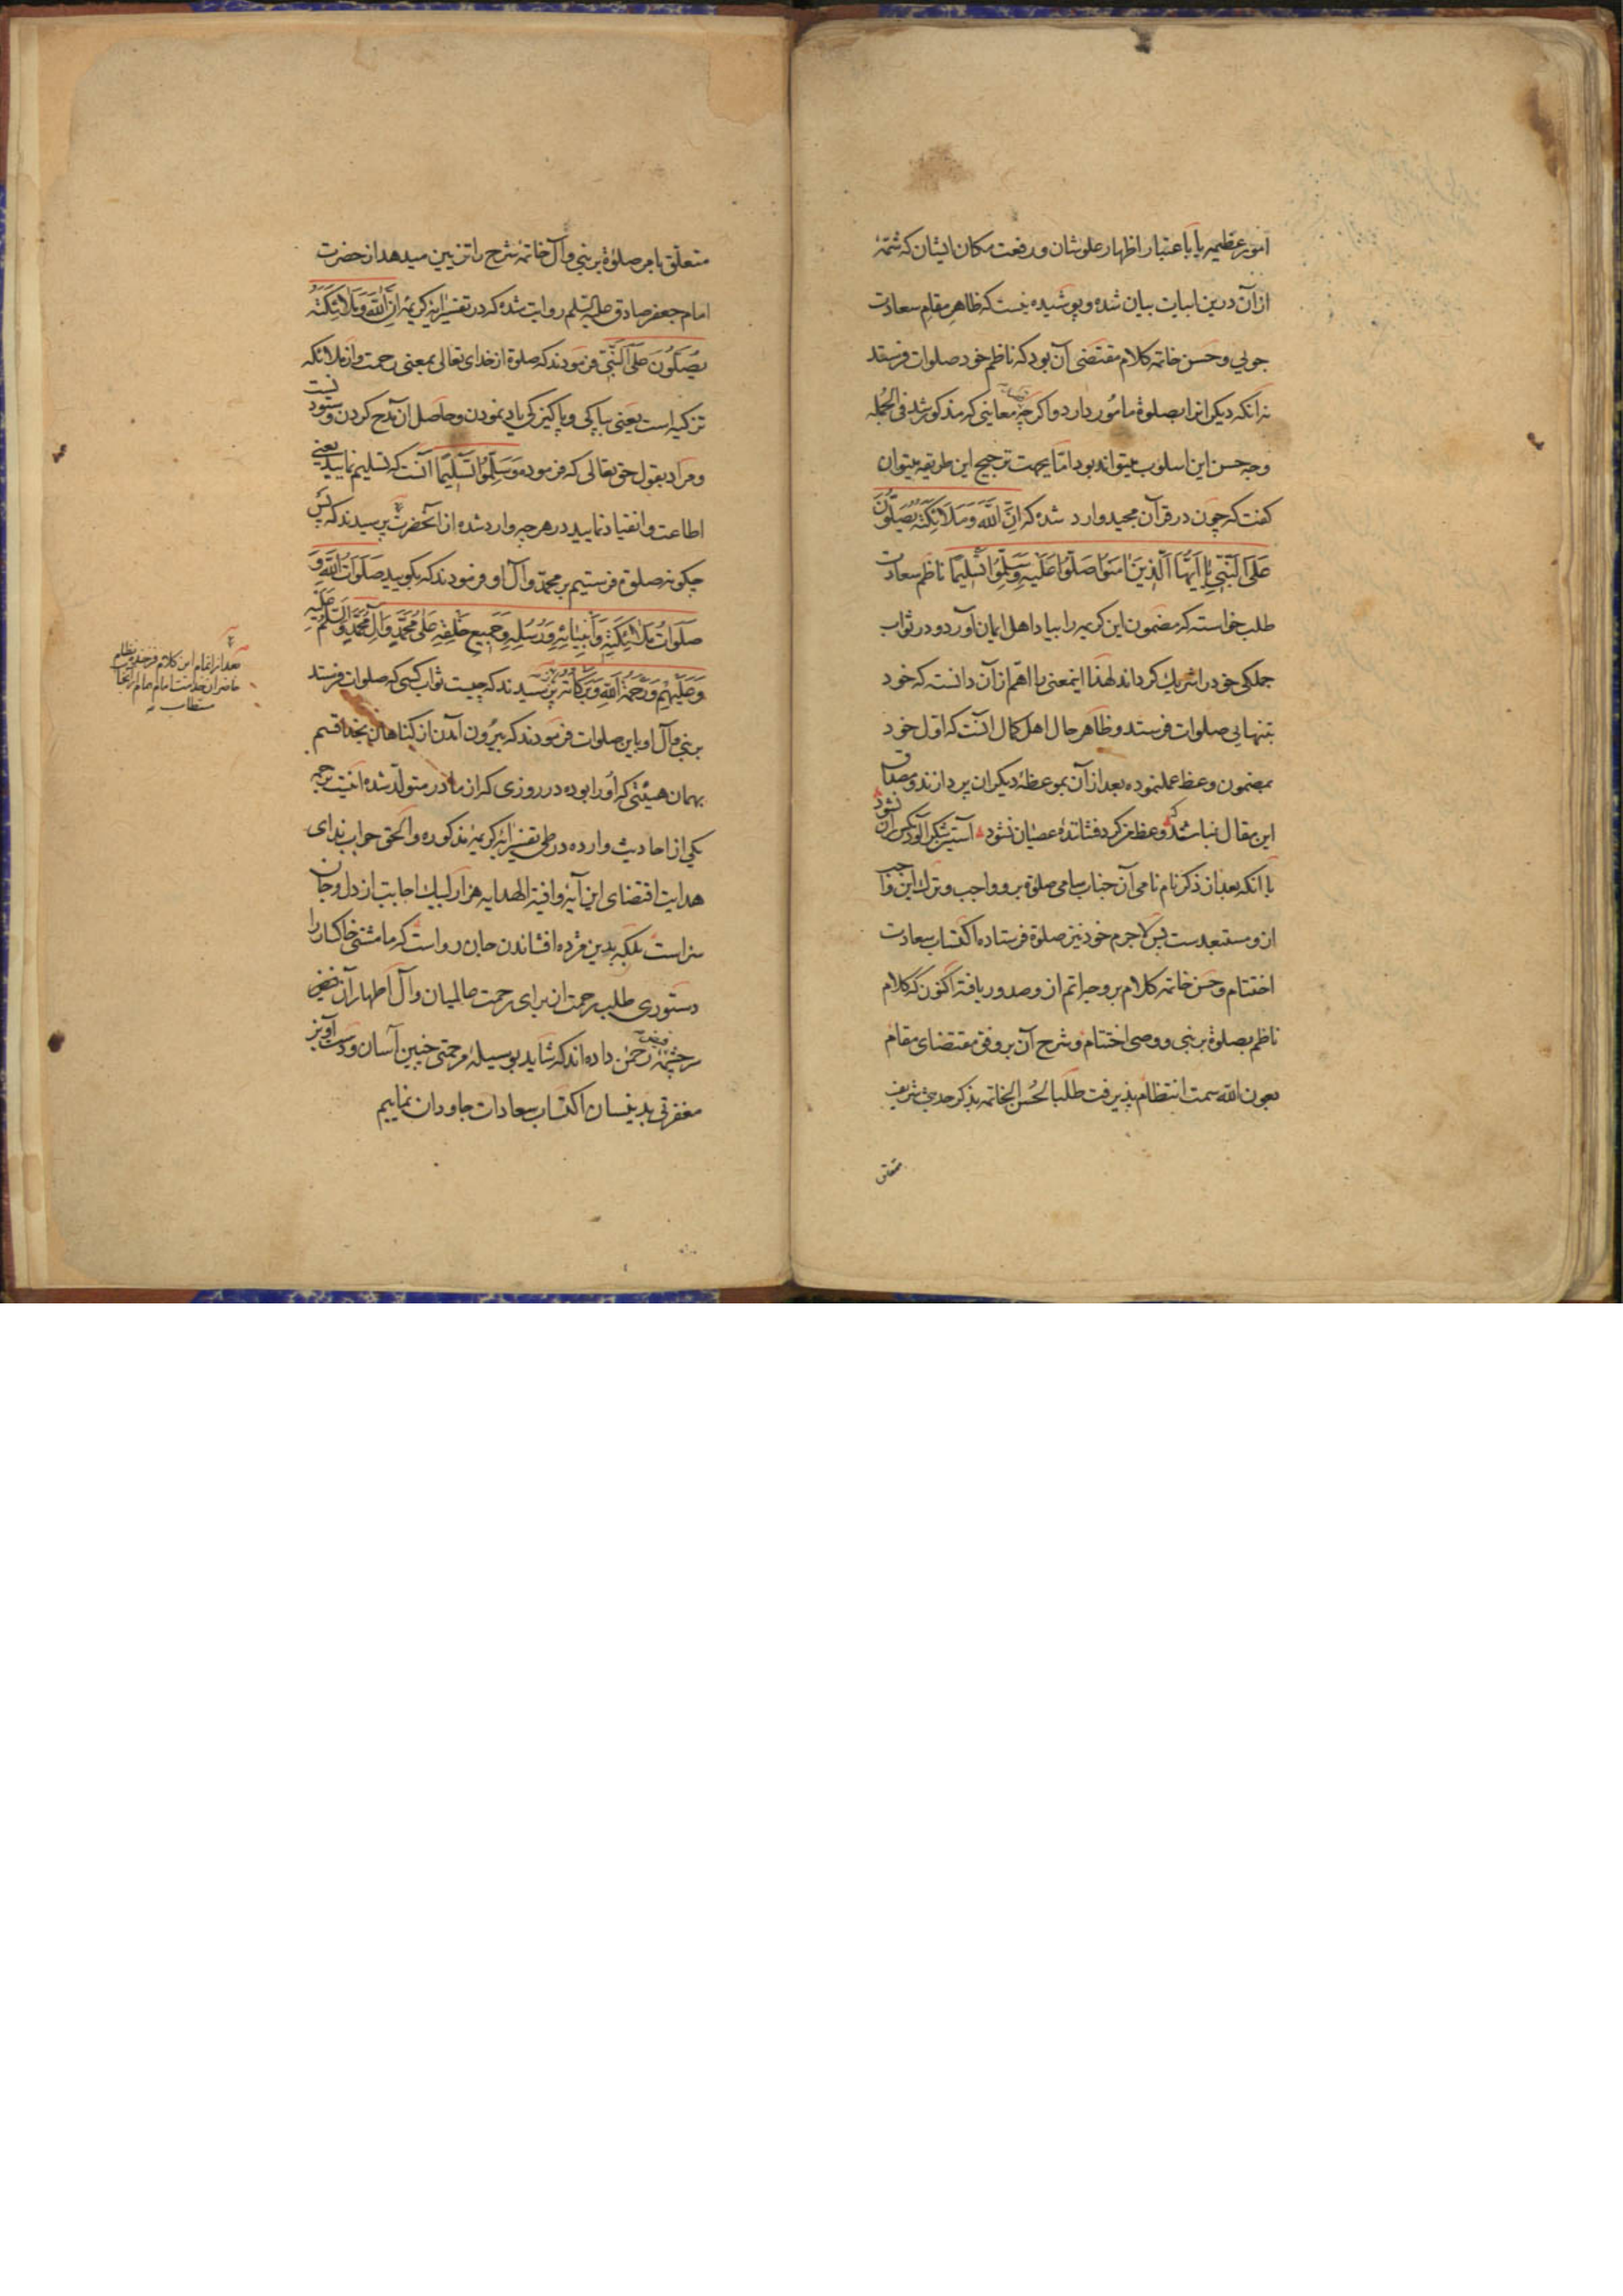 امور عظیمه یا باعتبار اظهار علو شان و رفعت مکان ایشان که شمّهٔ
از آن درین ابیات بیان شده و پوشیده نیست که ظاهر مقام سعادت
جویی و حسن خاتمه کلام مقتضی آن بود که ناظم خود صلوات فرستد
نه آنکه دیگرانرا بصلوة مأمور دارد و اگر چه معانیی که مذکور شد فی الجمله
وجه حسن این اسلوب میتواند بود اما بجهت ترجیح این طریقه میتوان
گفت که چون در قرآن مجید وارد شده که اِنَّ اللّٰهَ وَمَلَائِكَتَهُ يُصَلُّونَ
عَلَى النَّبِيِّ يَا اَيُّهَا الَّذِينَ اٰمَنُوا صَلُّوا عَلَيْهِ وَسَلِّمُوا تَسْلِيمًا ناظم سعادت
طلب خواسته که مضمون این کریمه را بیاد اهل ایمان آورد و در ثواب
جملگی خود را شریک گرداند لهذا اینمعنی را اهم از آن دانسته که خود
بتنهایی صلوات فرستد و ظاهر حال اهل کمال آنست که اول خود
بمضمون وعظ عمل نموده بعد از آن بموعظهٔ دیگران پردازند و مصداق
این مقال نباشند که وعظ گرد فشانندهٔ عصیان نشود آستین شکر آلود مگس ران نشود
با آنکه بعد از ذکر نام نامی آن جناب سامی صلوة برو واجب و ترک این واجب
ازو مستبعدست پس لاجرم خود نیز صلوة فرستاده اکتساب سعادت
اختتام و حسن خاتمه کلام بر وجه اتم ازو صدور یافته اکنون که کلام
ناظم بصلوة بر نبی و وصی اختتام و شرح آن بر وفق مقتضای مقام
بعون الله سمت انتظام پذیرفت طلبا لحسن الخاتمه بذکر حدیث شریف
متعلق
متعلق بامر صلوة بر نبی و آل خاتمهٔ شرح را تزیین میدهد از حضرت
امام جعفر صادق علیه السلم روایت شده که در تفسیر آیهٔ کریمه اِنَّ اللّٰهَ وَمَلَائِكَتَهُ
يُصَلُّونَ عَلَى النَّبِيِّ فرمودند که صلوة از خدای تعالی بمعنی رحمت و از ملائکه
تزکیه است یعنی بپاکی و پاکیزگی یاد نمودن و حاصل آن مدح کردن و ستودنست
و مراد بقول حق تعالی که فرموده وَسَلِّمُوا تَسْلِيمًا آنست که تسلیم نمایید یعنی
اطاعت و انقیاد نمایید در هر چه وارد شده از آنحضرت پرسیدند که پس
چگونه صلوة فرستیم بر محمد و آل او فرمودند که بگویید صَلَوَاتُ اللّٰهِ وَ
صَلَوَاتُ مَلَائِكَتِهِ وَأَنْبِيَائِهِ وَرُسُلِهِ وَجَمِيعِ خَلْقِهِ عَلَى مُحَمَّدٍ وَآلِ مُحَمَّدٍ وَالسَّلَمُ عَلَيْهِ
وَعَلَيْهِمْ وَرَحْمَةُ اللّٰهِ وَبَرَكَاتُهُ پرسیدند که چیست ثواب کسی که صلوات فرستد
بر نبی و آل او باین صلوات فرمودند که بیرون آمدن از گناهان بخدا قسم
بهمان هیئتی که او را بوده در روزی که از مادر متولد شده اینست ترجمه
یکی از احادیث وارده در طی تفسیر آیهٔ کریمهٔ مذکوره و الحق جواب ندای
هدایت اقتضای این آیهٔ وافیة الهدایه هزار لبیک اجابت از دل و جان
سزاست بلکه بدین مژده افشاندن جان رواست که ما مشتی خاکسار را
دستوری طلب رحمت از برای رحمت عالمیان و آل اطهار آن
سرچشمهٔ رحمن داده اند که شاید بوسیلهٔ مرحمتی چنین آسان و دست آویز
مغفرتی بدینسان اکتساب سعادات جاودان نماییم
بعد از اتمام این کلام
حاضران خدمت امام
مستطاب